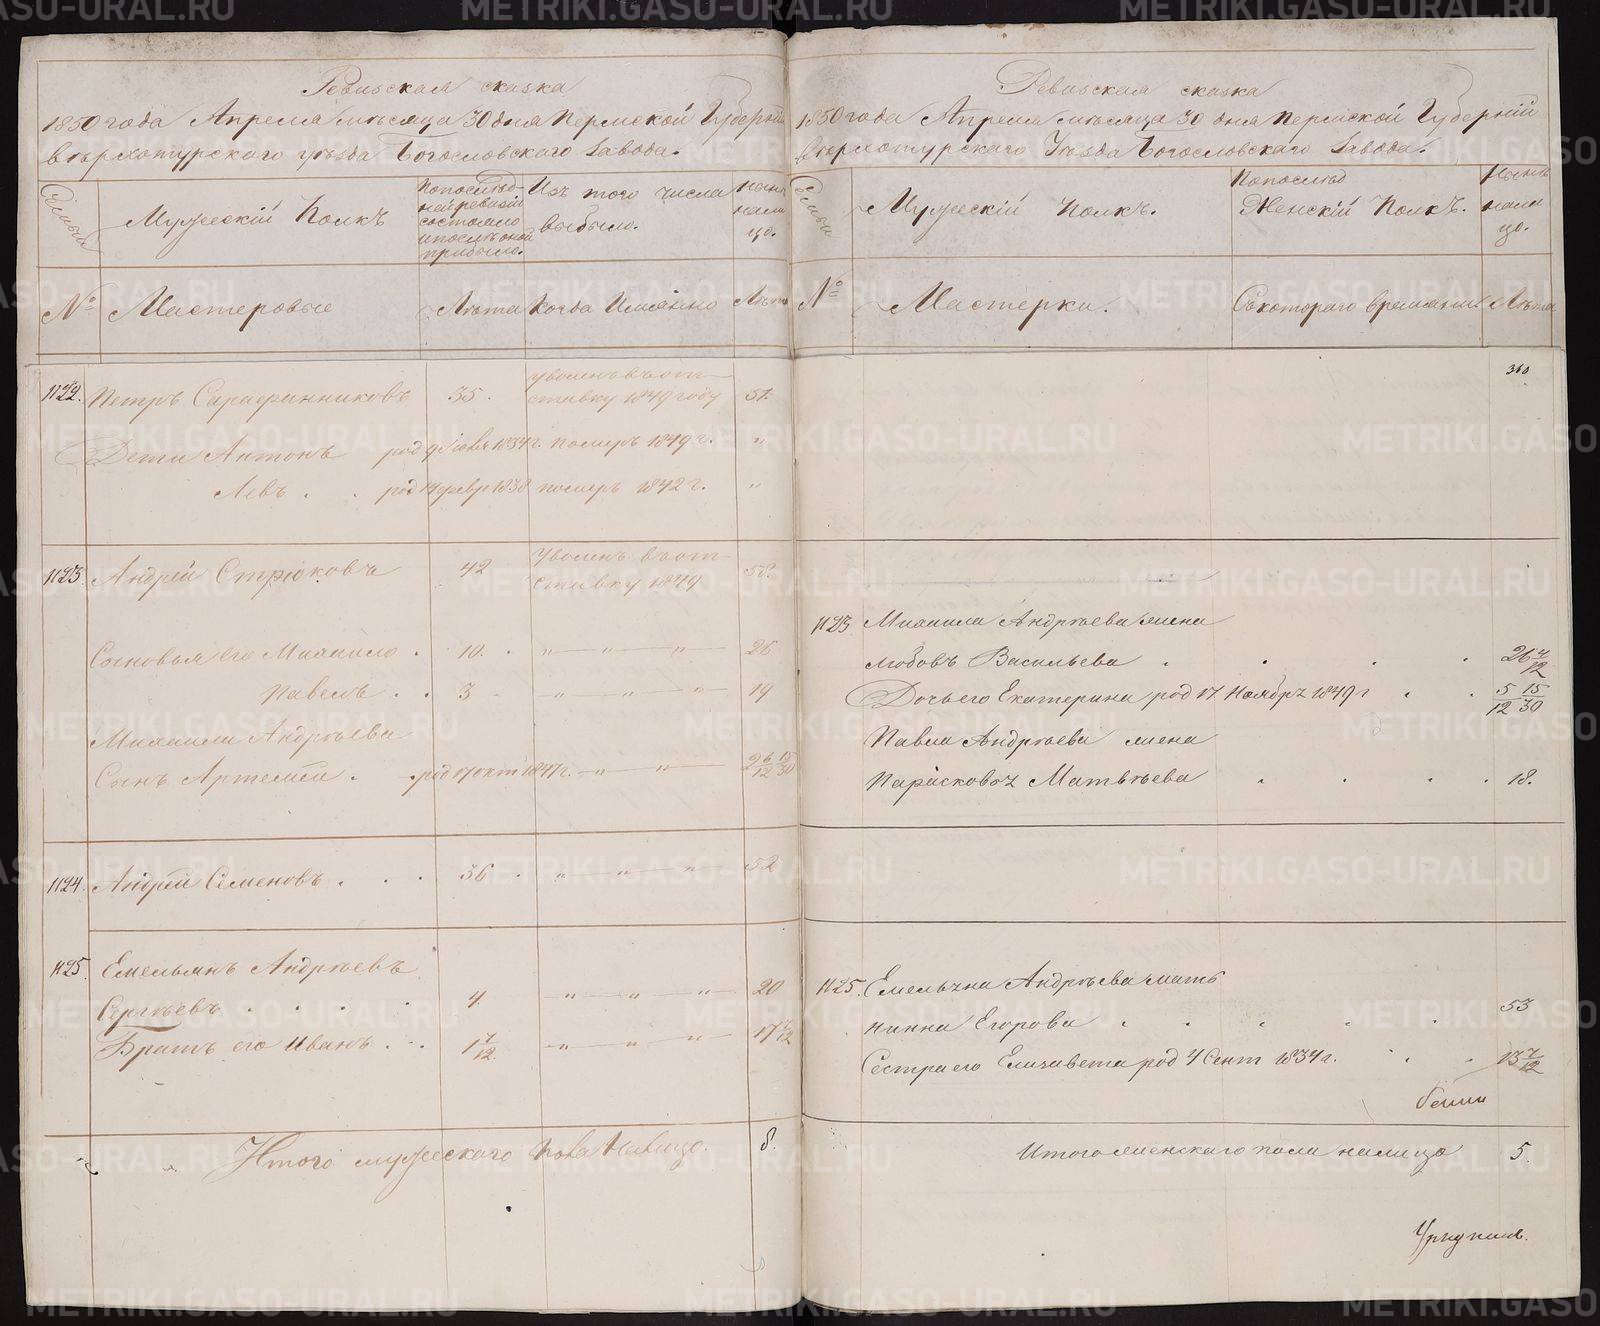 Ревизская сказка
1850 года Апреля месяца 30 дня Пермской Губерніи
Верхотурского уезда Богословского Завода.
Семьи
Мужескій Полкъ
По последней ревизіи состояло и после оной прибыло.
Изъ того числа выбыло.
Ныне на лицо.
№
Мастеровые
Лета
Когда Именно
Лета
1122. Петръ Сарафанниковъ 35. уволенъ въ отставку 1849 году 51.
Дети Антонъ род 9 1834 г. померъ 1849 г. "
Левъ . . род 14 февр 1838 померъ 1842 г. "
1123. Андрей Стрюковъ 42 Уволенъ въ отставку 1849 58.
Сыновья его Михайло . 10. . " — " — " 26
Павелъ . . 3 - " — " — " 19
Михаила Андреева
Сынъ Артемій . род 17 окт 1847 г. — " — " — 2 6/12 15/30
1124. Андрей Семеновъ . . . 36 . " — " — " 52
1125. Емельянъ Андреевъ
Сергеевъ . . . . 4. " — " — " 20
Братъ его Иванъ . . . 1 7/12 " — " — " 17 7/12
Итого мужескаго пола на лицо. 8.
Ревизская сказка
1850 года Апреля месяца 30 дня Пермской Губерніи
Верхотурского Уезда Богословского Завода.
Семьи
Мужескій полкъ.
По послед
Женскій Полкъ.
Ныне на лицо.
№
Мастерки.
Съ котораго времени
Лета
310
1123 Михаила Андреева жена
Любовь Васильева . . . . 26 4/12
Дочь его Екатерина род 17 Ноябрь 1849 г . . 5/12 15/30
Павла Андреева жена
Парасковья Матвеева . . . . 18.
1125. Емельяна Андреева мать
Егорова . . . . . 53
Сестра его Елизавета род 4 Сент 1834 г. . . 13 7/12
Итого женскаго пола на лицо 5.
METRIKI.GASO-URAL.RU